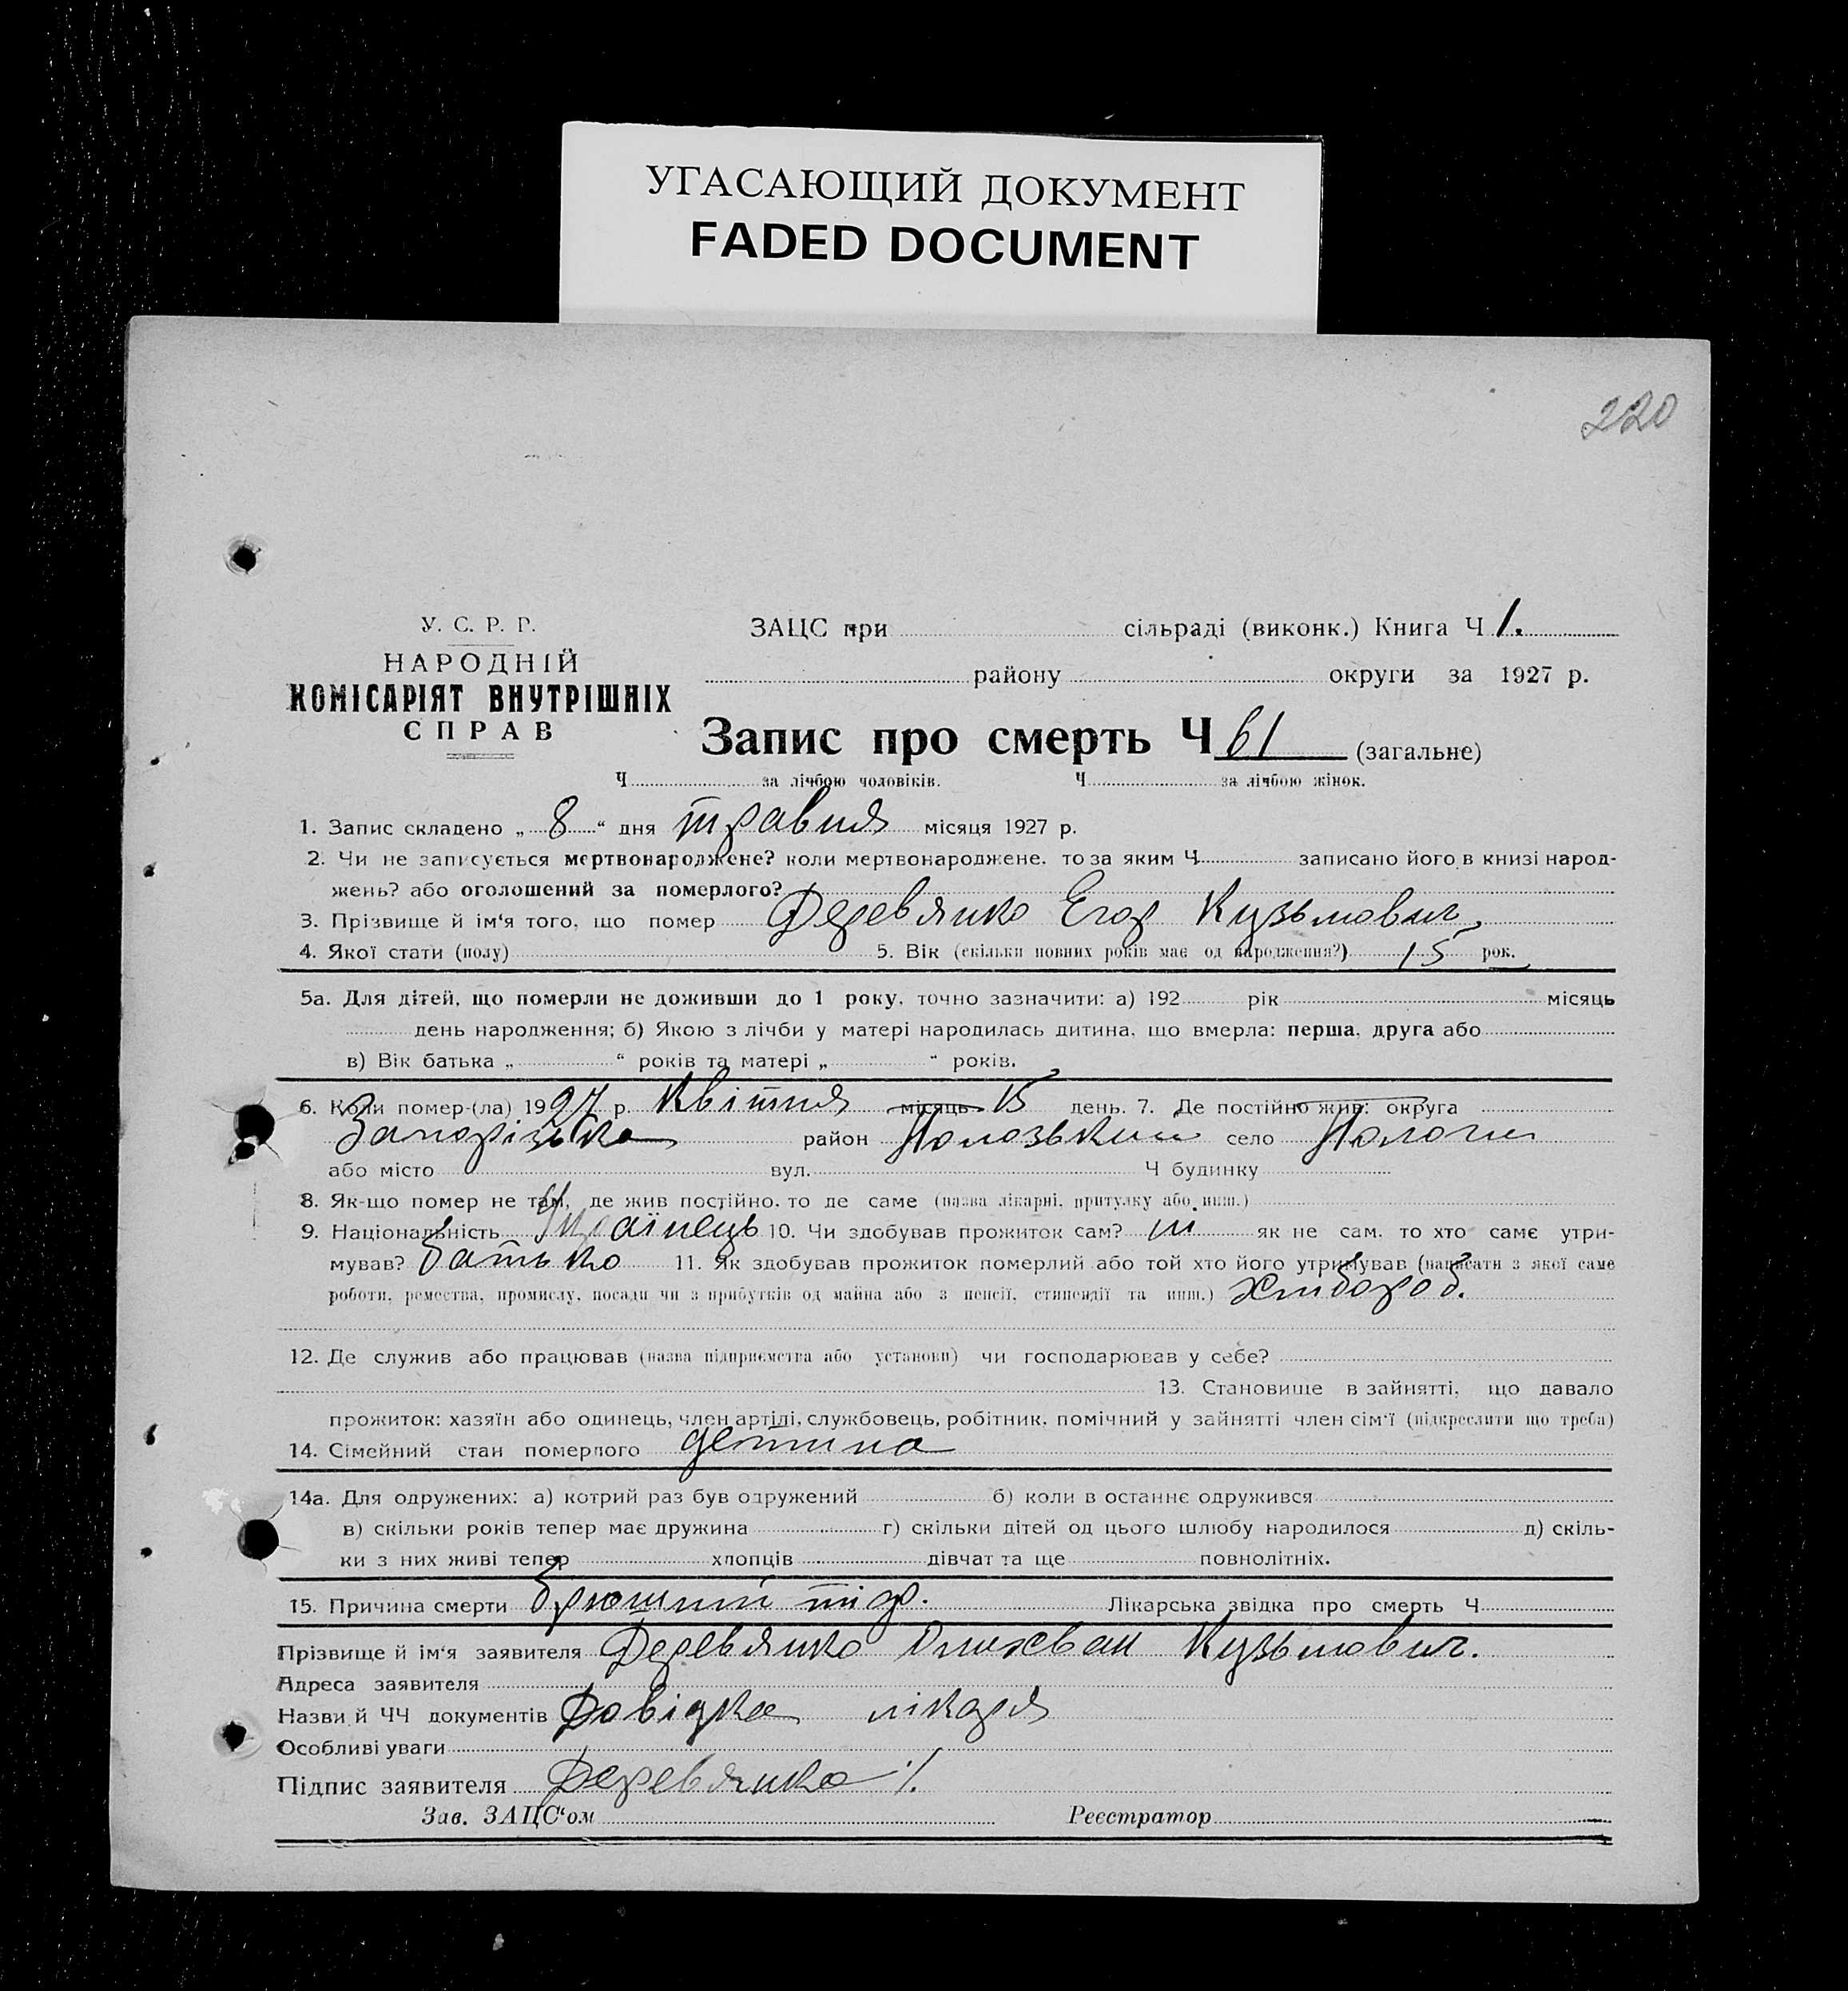 УГАСАЮЩИЙ ДОКУМЕНТ
FADED DOCUMENT
220
У. С. Р. Р.
НАРОДНІЙ
КОМІСАРІЯТ ВНУТРІШНІХ
СПРАВ
ЗАЦС при сільраді (виконк.) Книга Ч 1.
району округи за 1927 р.
Запис про смерть Ч 61 (загальне)
Ч за лічбою чоловіків. Ч за лічбою жінок.
1. Запис складено „ 8 “ дня травня місяця 1927 р.
2. Чи не записується мертвонароджене? коли мертвонароджене, то за яким Ч записано його в книзі народ-
жень? або оголошений за померлого?
3. Прізвище й ім‘я того, що помер Деревянко Егор Кузьмович,
4. Якої стати (полу) 5. Вік (скільки повних років має од народження?) 15 рок.
5а. Для дітей, що померли не доживши до 1 року, точно зазначити: а) 192 рік місяць
день народження; б) Якою з лічби у матері народилась дитина, що вмерла: перша, друга або
в) Вік батька „ “ років та матері „ “ років.
6. Коли помер-(ла) 1927 р. Квітня місяць 15 день. 7. Де постійно жив: округа
Запорізька район Пологзький село Пологи
або місто вул. Ч будинку
8. Як-що помер не там, де жив постійно, то де саме (назва лікарні, притулку або инш.)
9. Національність Українець 10. Чи здобував прожиток сам? ні як не сам, то хто саме утри-
мував? батько 11. Як здобував прожиток померлий або той хто його утримував (написати з якої саме
роботи, ремества, промислу, посади чи з прибутків од майна або з пенсії, стипендії та инш.) Хлибороб.
12. Де служив або працював (назва підприємства або установи) чи господарював у себе?
13. Становище в зайнятті, що давало
прожиток: хазяїн або одинець, член артілі, службовець, робітник, помічний у зайнятті член сім‘ї (підкреслити що треба)
14. Сімейний стан померлого детина
14а. Для одружених: а) котрий раз був одружений б) коли в останнє одружився
в) скільки років тепер має дружина г) скільки дітей од цього шлюбу народилося д) скіль-
ки з них живі тепер хлопців дівчат та ще повнолітніх.
15. Причина смерти брюшний тіф. Лікарська звідка про смерть Ч
Прізвище й ім‘я заявителя Деревянко Кузьмович.
Адреса заявителя
Назви й ЧЧ документів Довідка лікаря
Особливі уваги
Підпис заявителя Деревянко
Зав. ЗАЦС‘ом Реєстратор